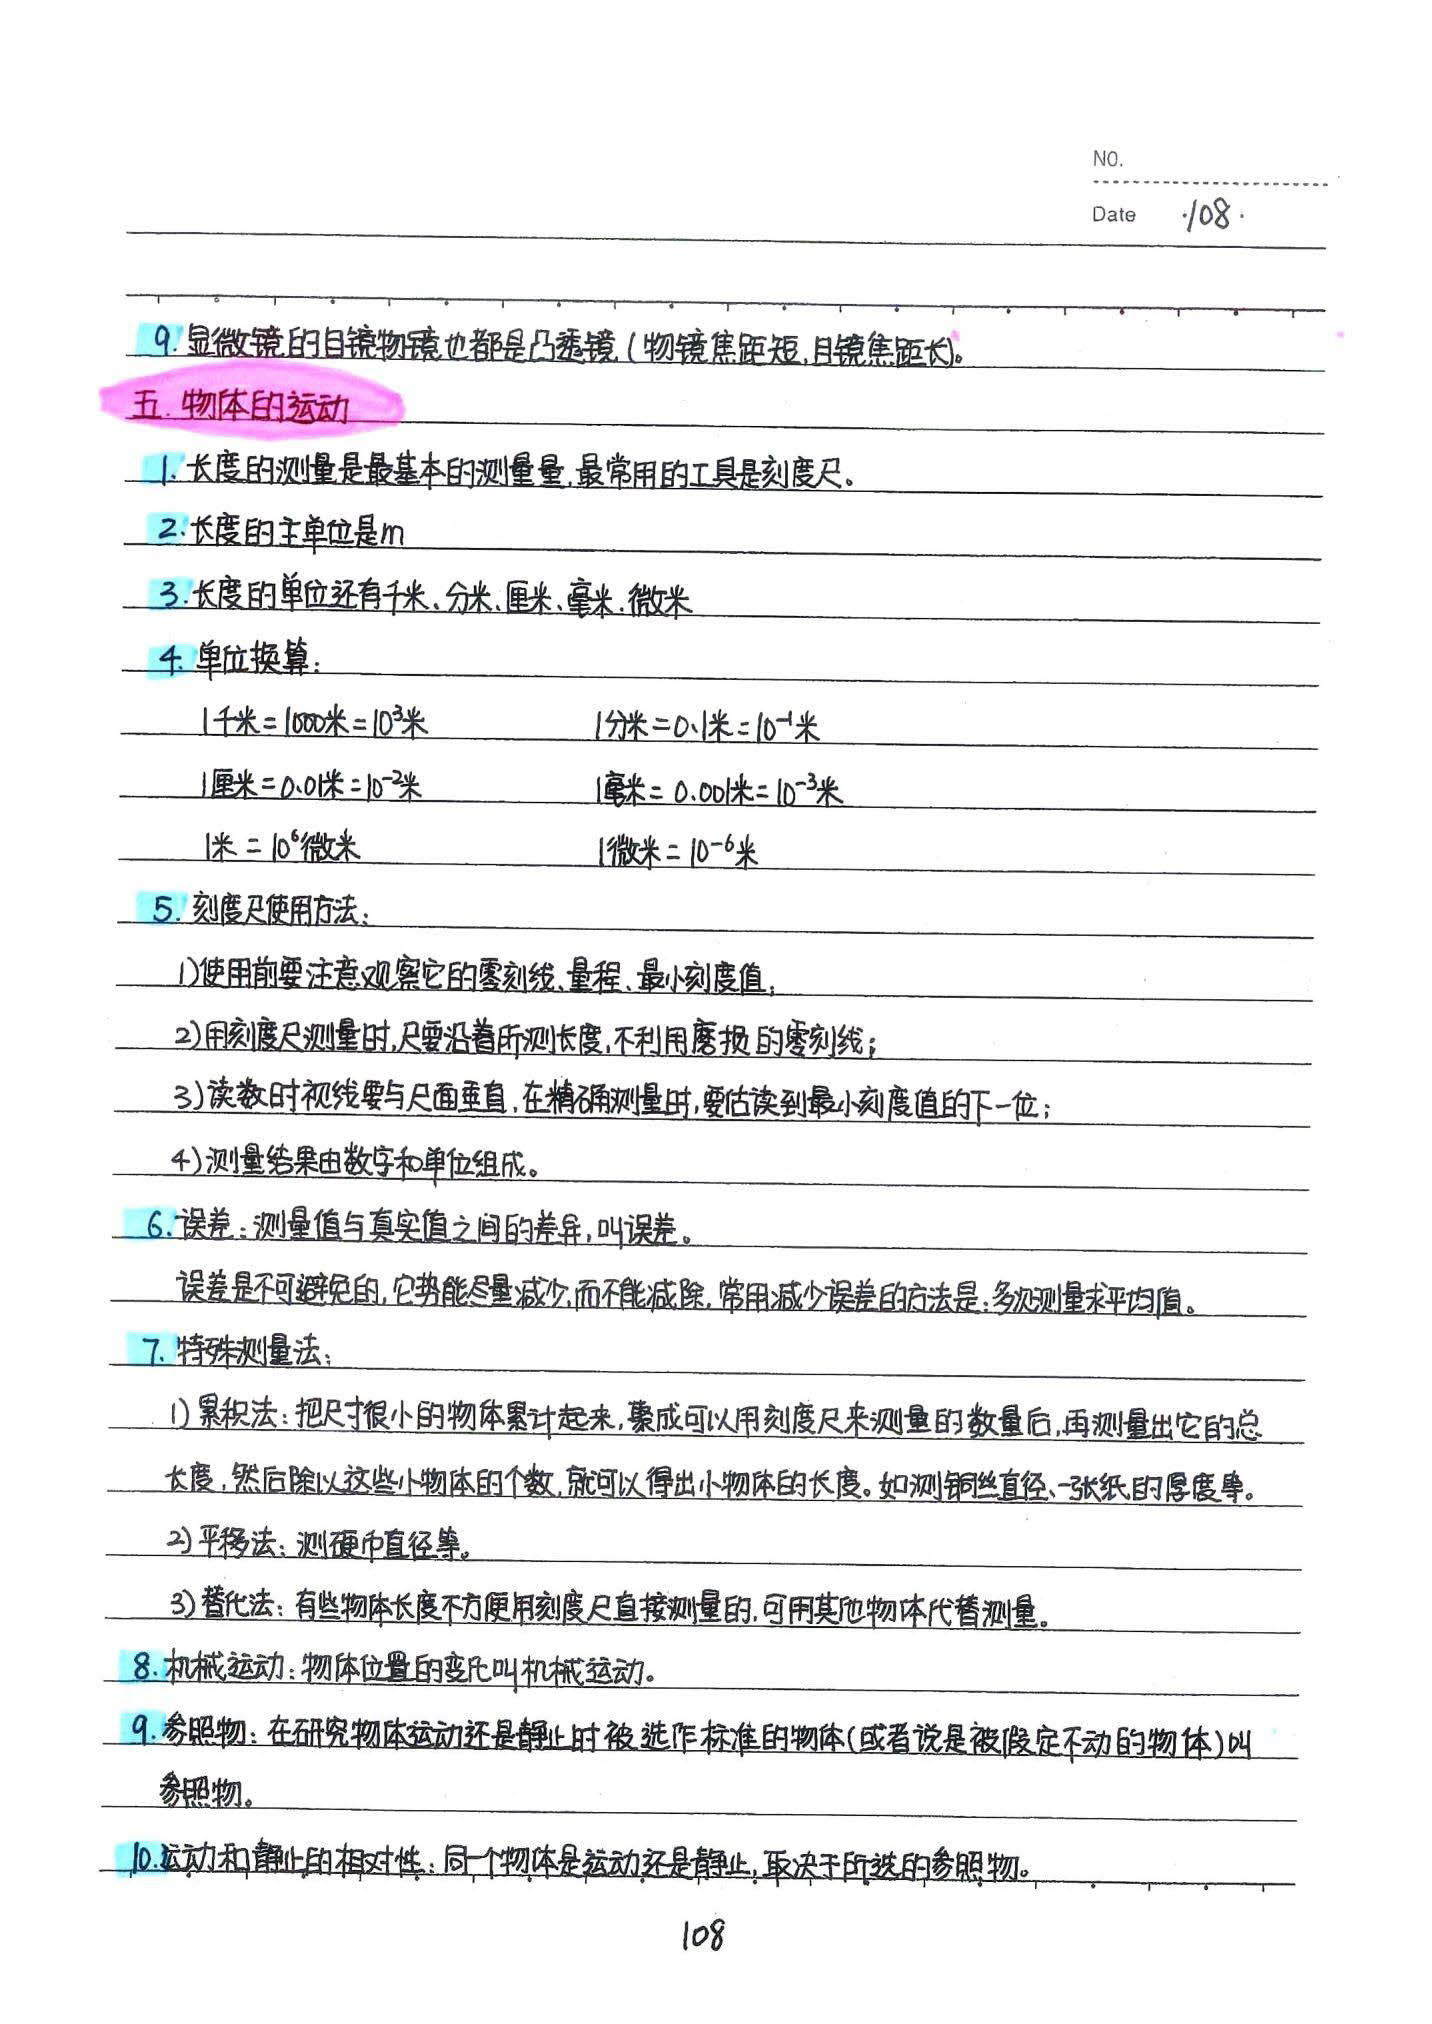 NO.
Date ·108·
9. 显微镜的目镜物镜也都是凸透镜(物镜焦距短,目镜焦距长)。
五. 物体的运动
1. 长度的测量是最基本的测量量,最常用的工具是刻度尺。
2. 长度的主单位是m
3. 长度的单位还有千米、分米、厘米、毫米、微米
4. 单位换算:
1千米=1000米=10³米 1分米=0.1米=10⁻¹米
1厘米=0.01米=10⁻²米 1毫米=0.001米=10⁻³米
1米=10⁶微米 1微米=10⁻⁶米
5. 刻度尺使用方法:
1)使用前要注意观察它的零刻线、量程、最小刻度值;
2)用刻度尺测量时,尺要沿着所测长度,不利用磨损的零刻线;
3)读数时视线要与尺面垂直,在精确测量时,要估读到最小刻度值的下一位;
4)测量结果由数字和单位组成。
6. 误差:测量值与真实值之间的差异,叫误差。
误差是不可避免的,它势能尽量减少,而不能减除,常用减少误差的方法是:多次测量求平均值。
7. 特殊测量法:
1)累积法:把尺寸很小的物体累计起来,聚成可以用刻度尺来测量的数量后,再测量出它的总
长度,然后除以这些小物体的个数,就可以得出小物体的长度。如测铜丝直径、一张纸的厚度等。
2)平移法:测硬币直径等。
3)替代法:有些物体长度不方便用刻度尺直接测量的,可用其他物体代替测量。
8. 机械运动:物体位置的变化叫机械运动。
9. 参照物:在研究物体运动还是静止时被选作标准的物体(或者说是被假定不动的物体)叫
参照物。
10. 运动和静止的相对性:同一个物体是运动还是静止,取决于所选的参照物。
108